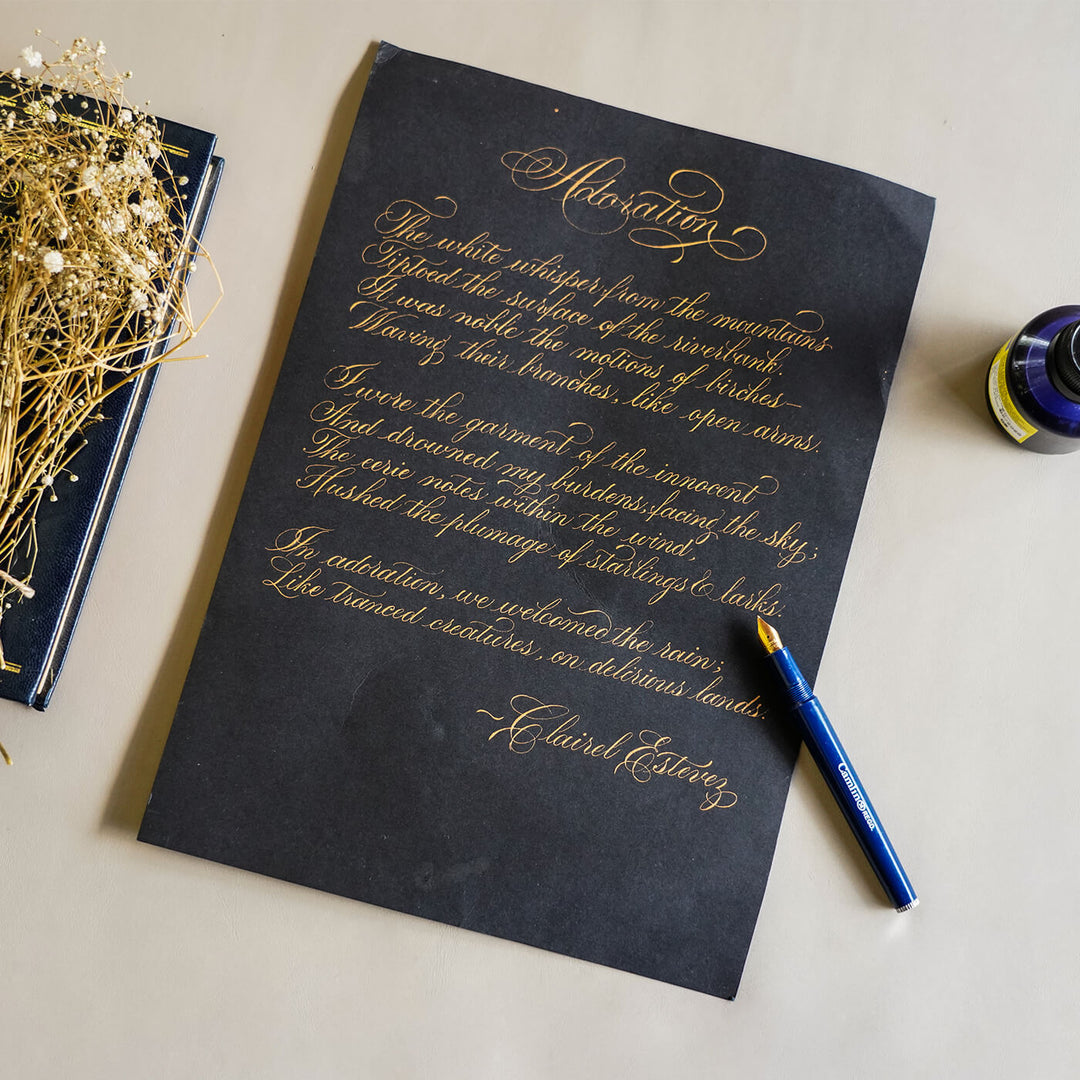 Adoration
The white whisper from the mountains
Tiptoed the surface of the riverbank;
It was noble the motions of birches—
Waving their branches, like open arms.
I wore the garment of the innocent
And drowned my burdens, facing the sky;
The eerie notes within the wind,
Hushed the plumage of starlings & larks.
In adoration, we welcomed the rain;
Like tranced creatures, on delirious lands.
~Clairel Estevez
Camlin REGD.